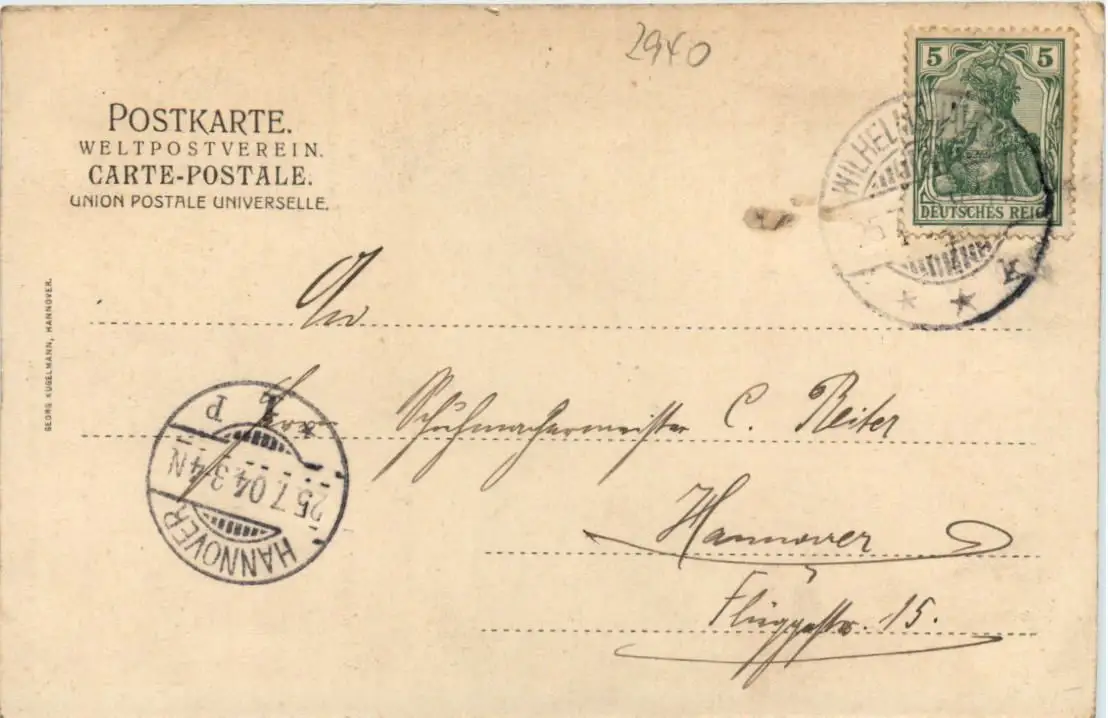 2940
5 5
DEUTSCHES REICH
WILHELM
25.7
K
POSTKARTE.
WELTPOSTVEREIN.
CARTE-POSTALE.
UNION POSTALE UNIVERSELLE.
GEORG KUGELMANN, HANNOVER.
An
Schuhmachermeister C. Reiter
Hannover
Flüggestr. 15.
HANNOVER
25.7.04.3-4N
* P